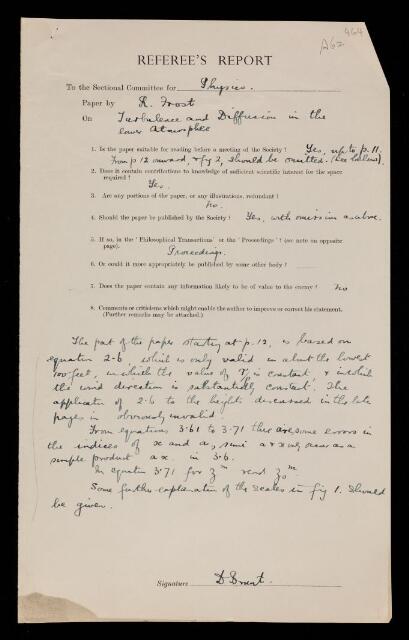 A62
464
REFEREE'S REPORT
To the Sectional Committee for Physics.
Paper by R. Frost
On Turbulence and Diffusion in the
lower Atmosphere
1. Is the paper suitable for reading before a meeting of the Society? Yes, up to p. 11.
From p 12 onward, & fig 2, should be omitted. (see below).
2. Does it contain contributions to knowledge of sufficient scientific interest for the space
required?
Yes.
3. Are any portions of the paper, or any illustrations, redundant?
No.
4. Should the paper be published by the Society? Yes, with omission as above.
5. If so, in the 'Philosophical Transactions' or the 'Proceedings'? (see note on opposite
page).
Proceedings.
6. Or could it more appropriately be published by some other body?
7. Does the paper contain any information likely to be of value to the enemy? No
8. Comments or criticisms which might enable the author to improve or correct his statement.
(Further remarks may be attached.)
The part of the paper starting at p. 12, is based on
equation 2·6, which is only valid in about the lowest
100 feet, in which the value of is constant & in which
the wind direction is substantially constant. The
application of 2·6 to the heights discussed in the late
pages is obviously invalid.
From equations 3·61 to 3·71 there are some errors in
the indices of x and a, since a & x only occur as a
simple product ax in 3·6.
In equation 3·71 for z^m read z₀^m.
Some further explanation of the scales in fig 1. should
be given.
Signature D Brunt.